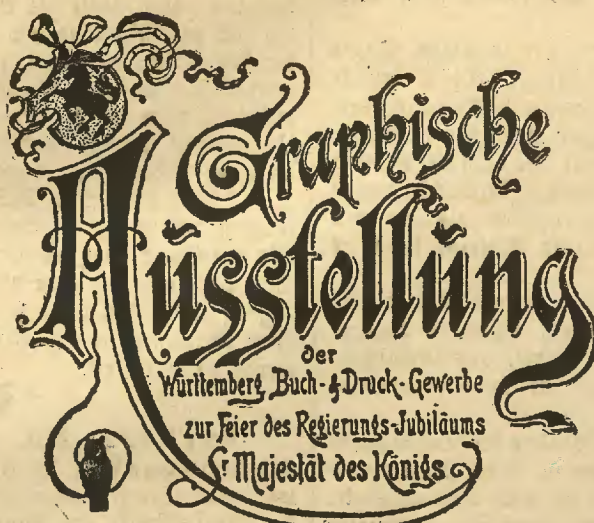 Graphische
Ausstellung
der
Württemberg. Buch- & Druck-Gewerbe
zur Feier des Regierungs-Jubiläums
Sr Majestät des Königs